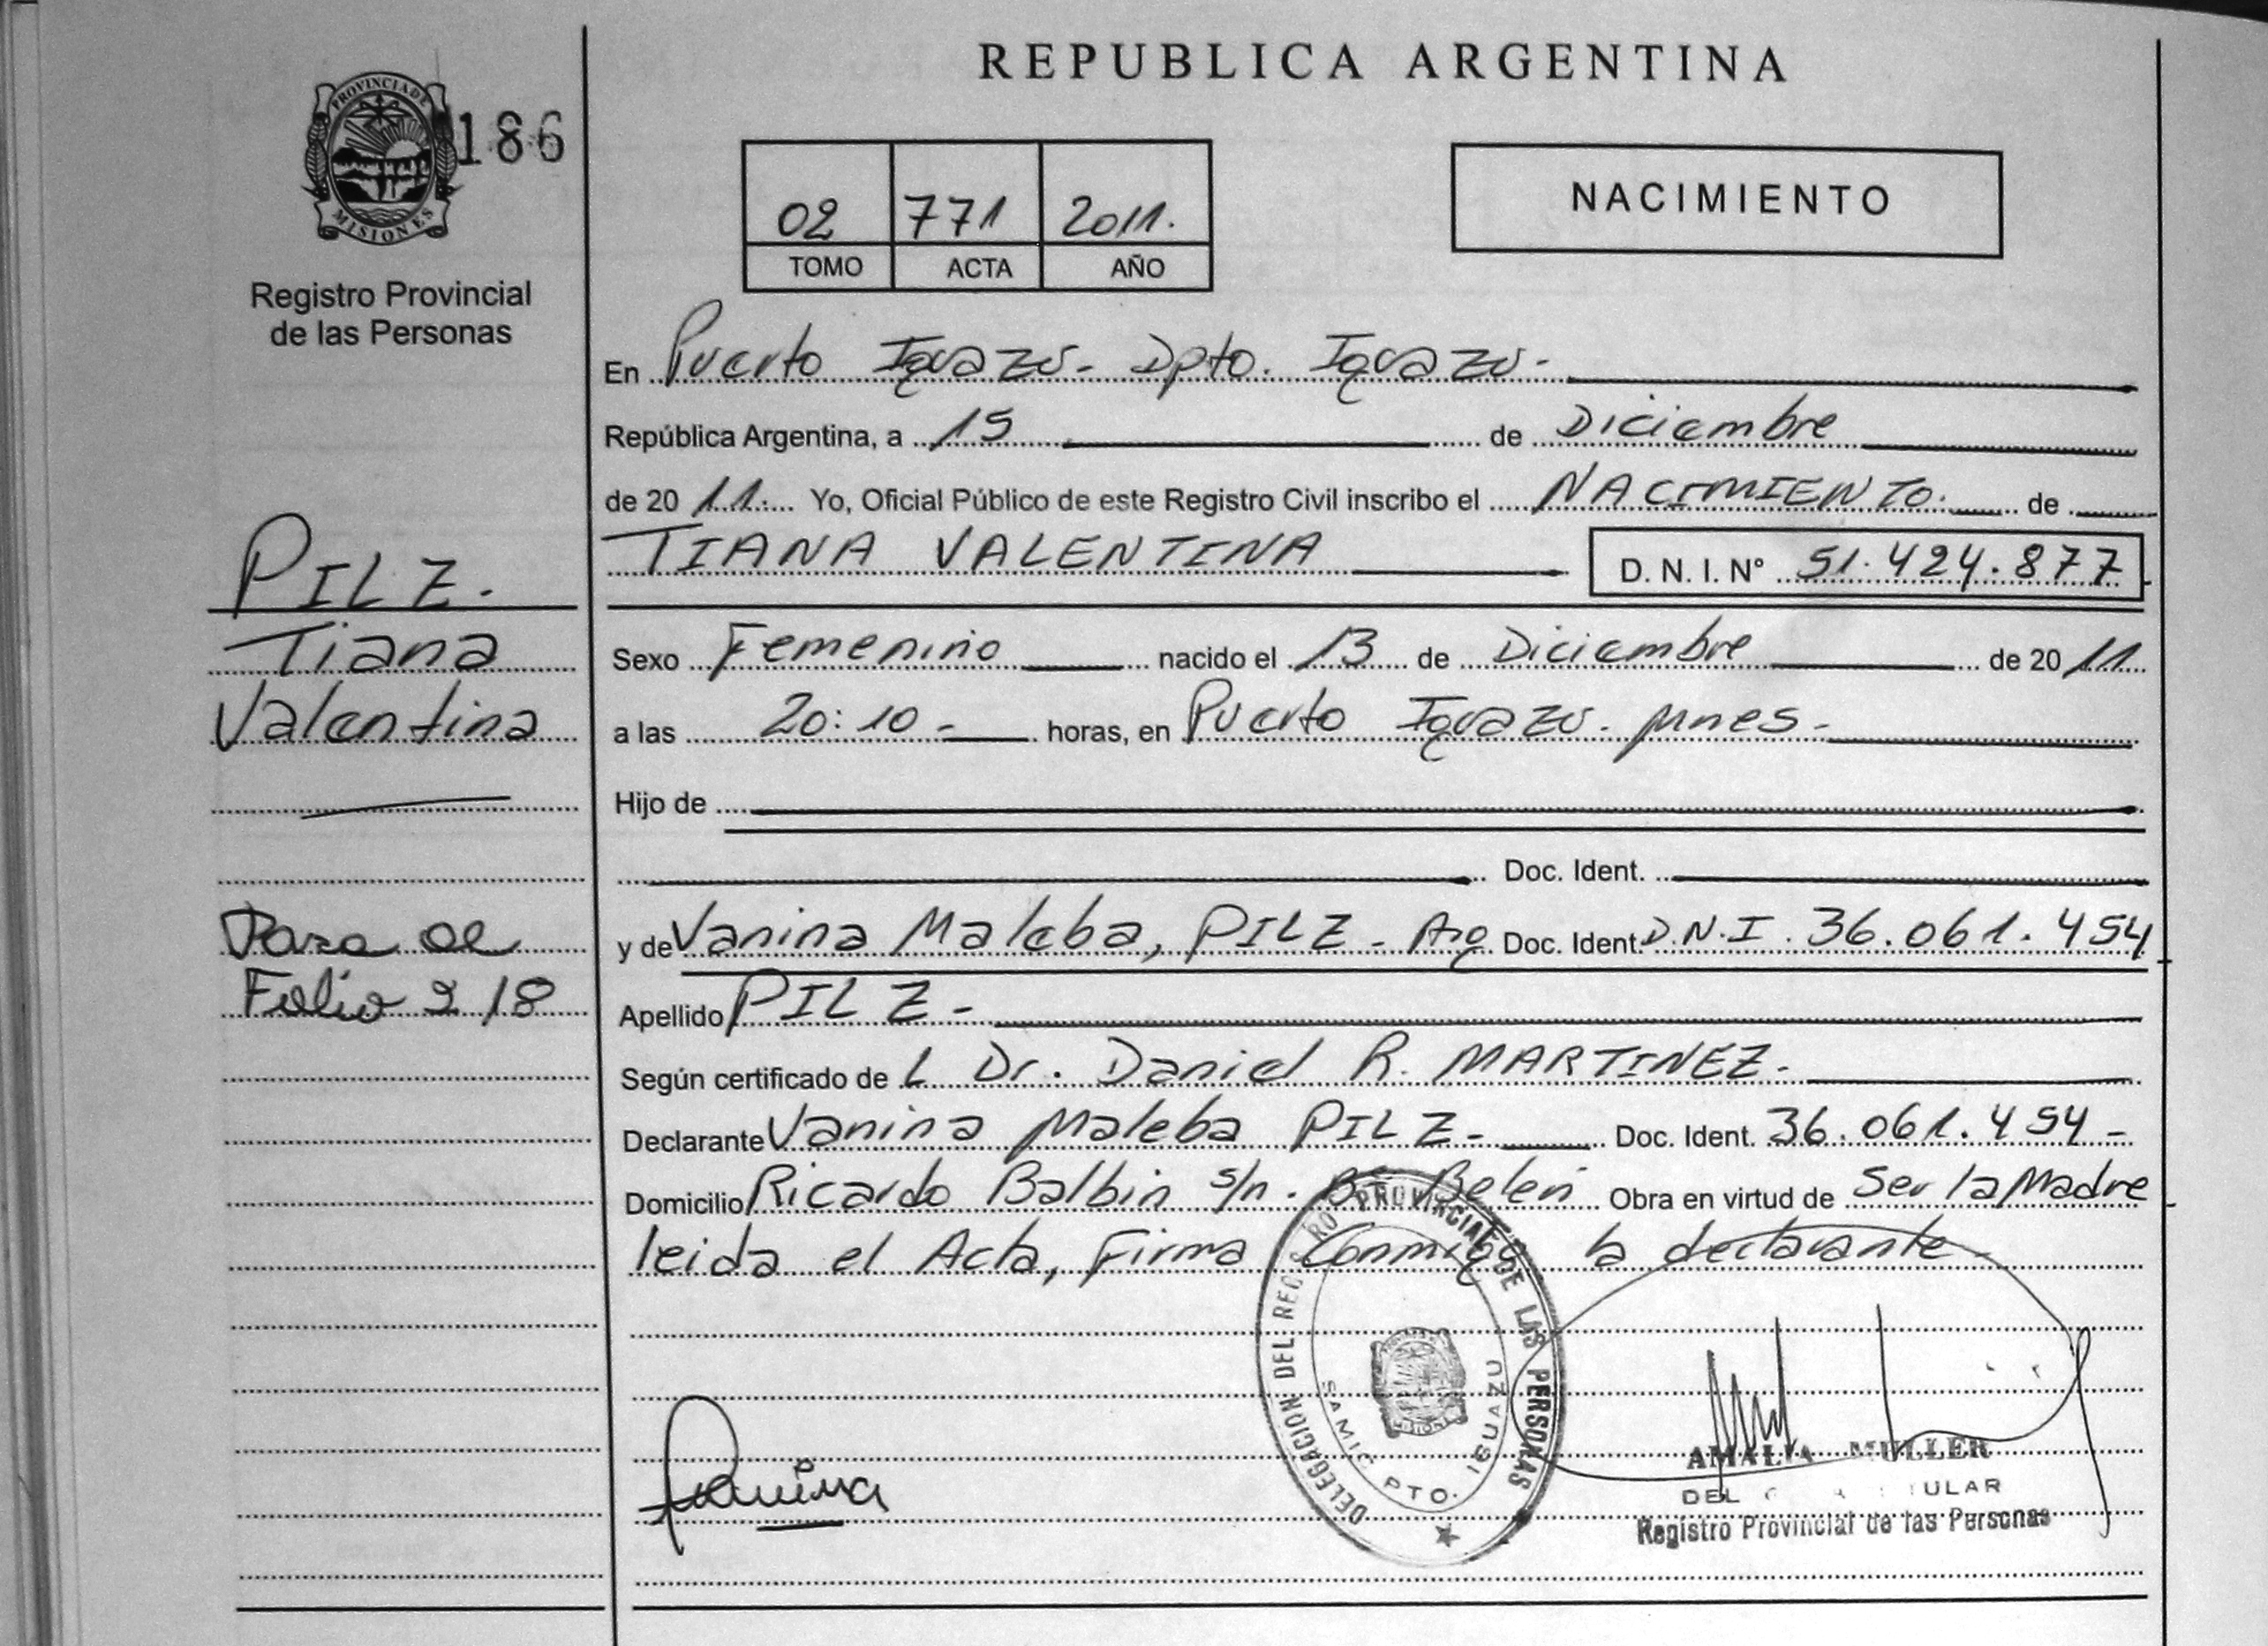 REPUBLICA ARGENTINA
PROVINCIA DE
MISIONES
186
Registro Provincial
de las Personas
02 771 2011.
TOMO ACTA AÑO
NACIMIENTO
En Puerto Iguazú - Dpto. Iguazú -
República Argentina, a 15 de Diciembre
de 20 11. Yo, Oficial Público de este Registro Civil inscribo el NACIMIENTO. de
TIANA VALENTINA D. N. I. N° 51.424.877
PILZ.
Tiana
Valentina
Pasa al
Folio 218
Sexo Femenino nacido el 13 de Diciembre de 20 11
a las 20:10 - horas, en Puerto Iguazú. Mnes -
Hijo de
Doc. Ident.
y de Vanina Maleba, PILZ - Arg Doc. Ident. D.N.I. 36.061.454
Apellido PILZ -
Según certificado de L Dr. Daniel R. MARTINEZ.
Declarante Vanina Maleba PILZ - Doc. Ident. 36.061.454 -
Domicilio Ricardo Balbin s/n. B° Belen Obra en virtud de Ser la Madre
leida el Acta, Firma Conmigo la declarante -
DELEGACION DEL REGISTRO PROVINCIAL DE LAS PERSONAS
SAMIC PTO. IGUAZU
Vanina
AMALIA MULLER
Registro Provincial de las Personas